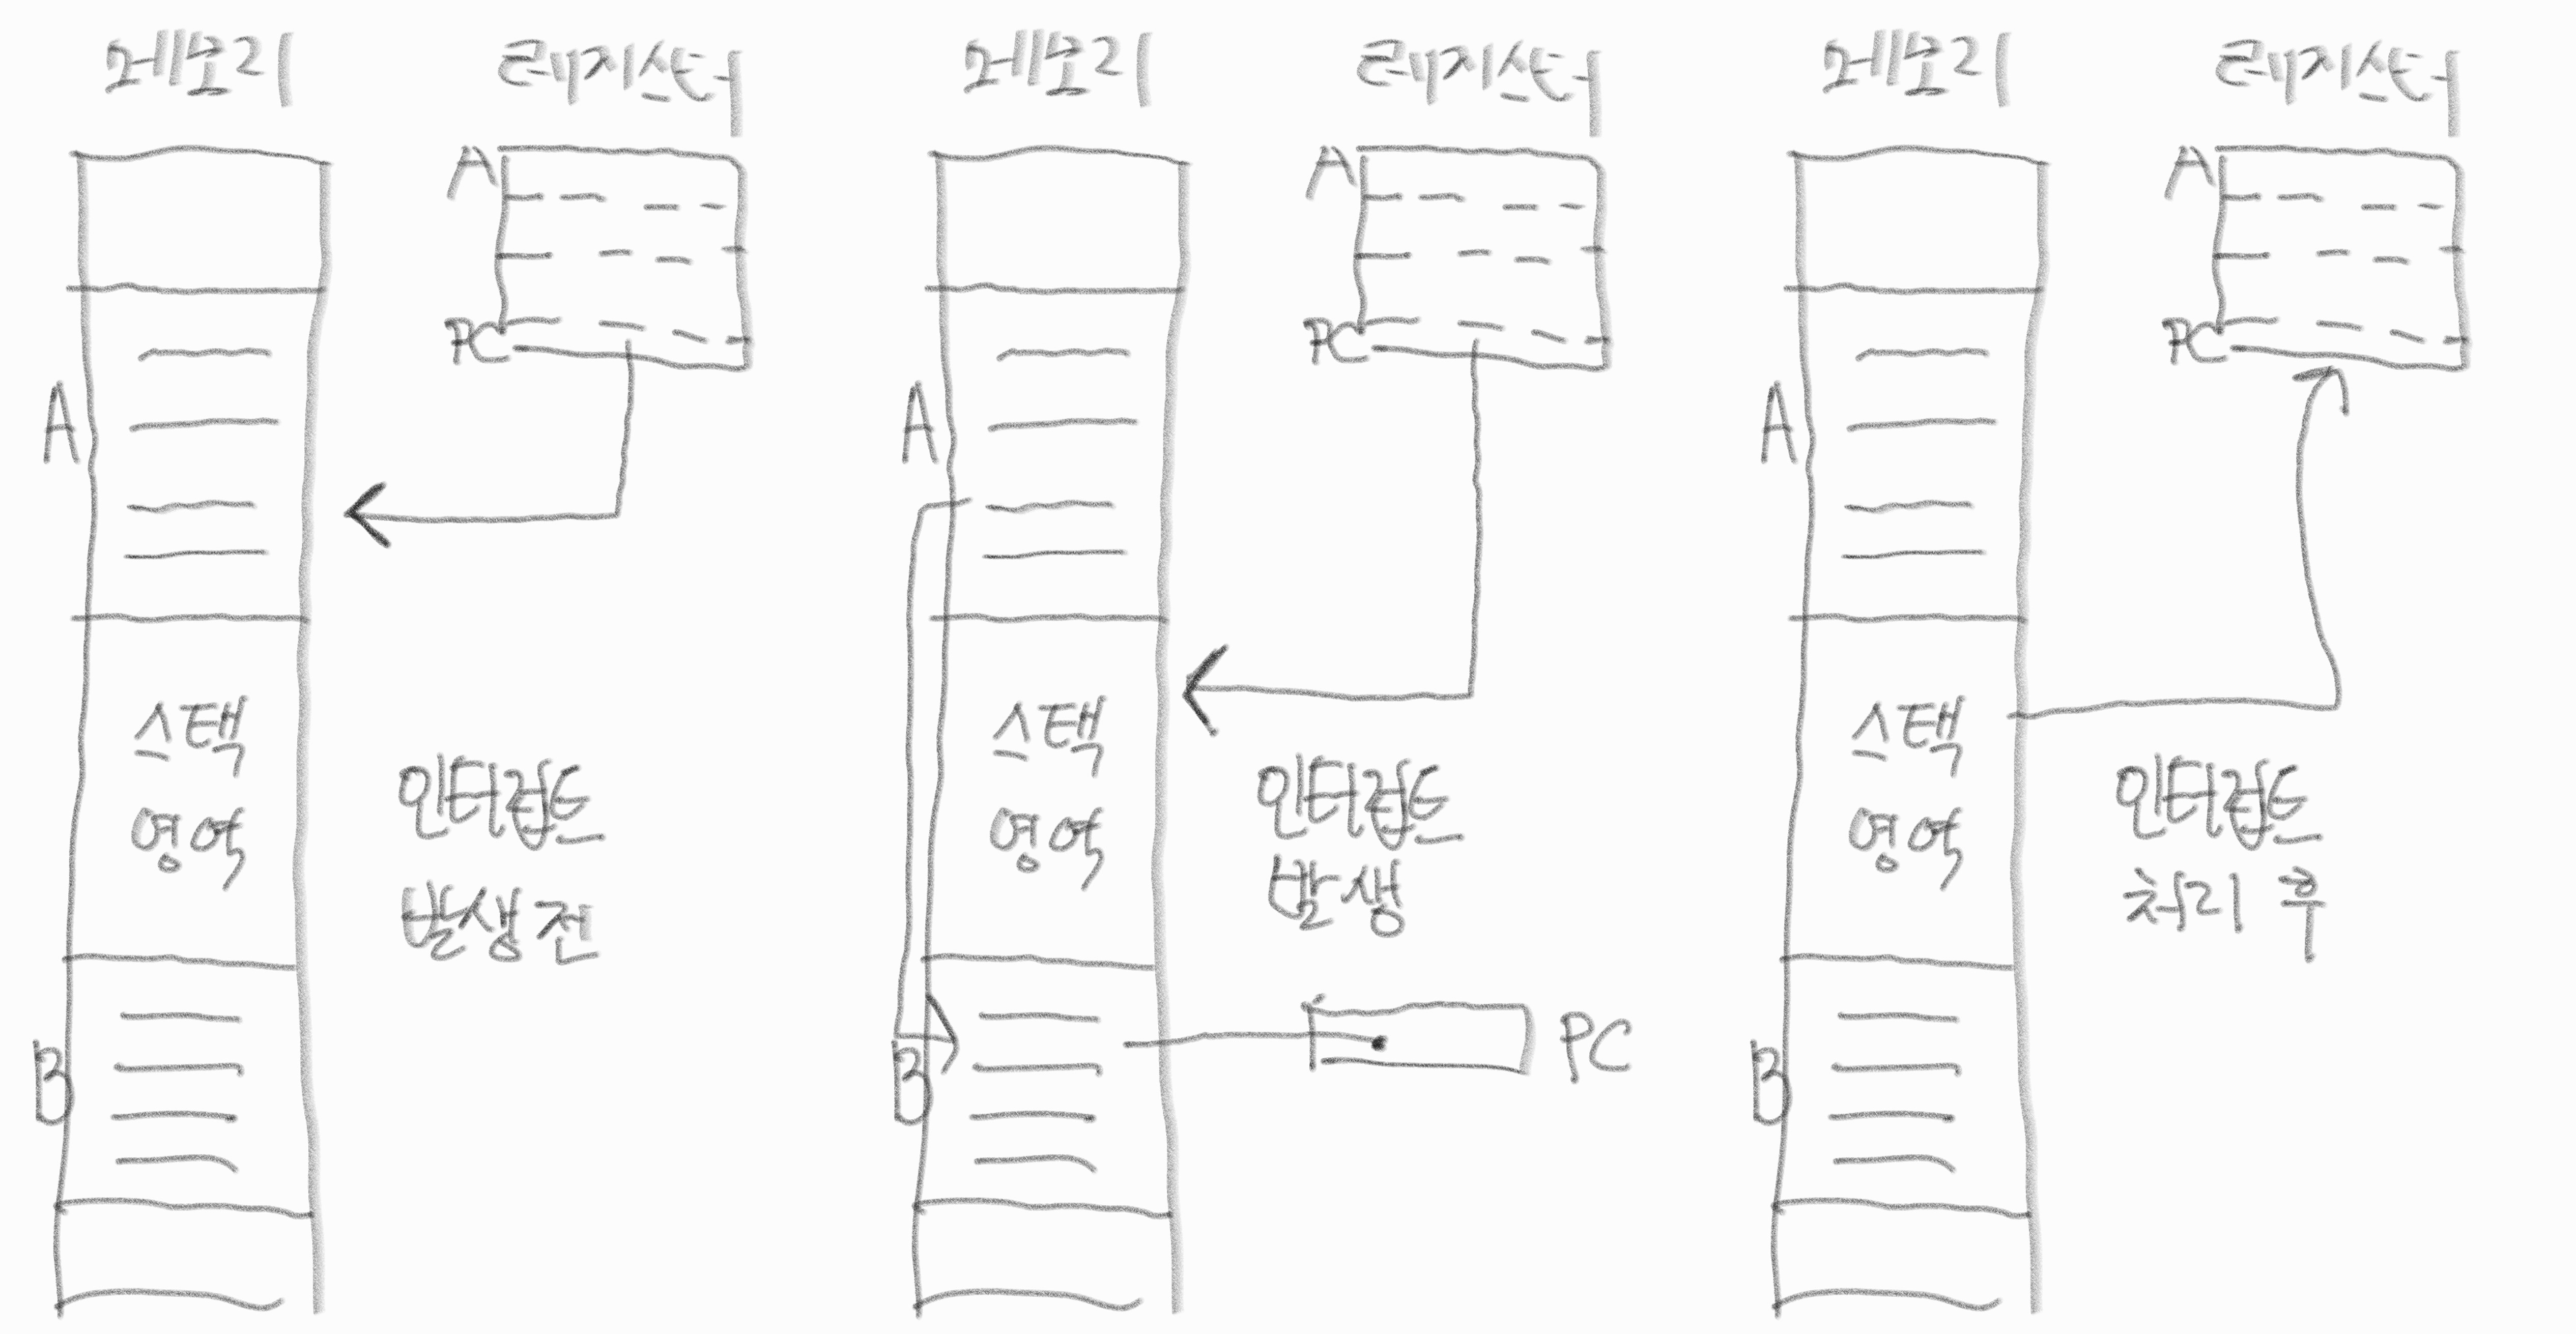 메모리
레지스터
A
PC
A
스택
영역
인터럽트
발생 전
B
메모리
레지스터
A
PC
A
스택
영역
인터럽트
발생
B
PC
메모리
레지스터
A
PC
A
스택
영역
인터럽트
처리 후
B